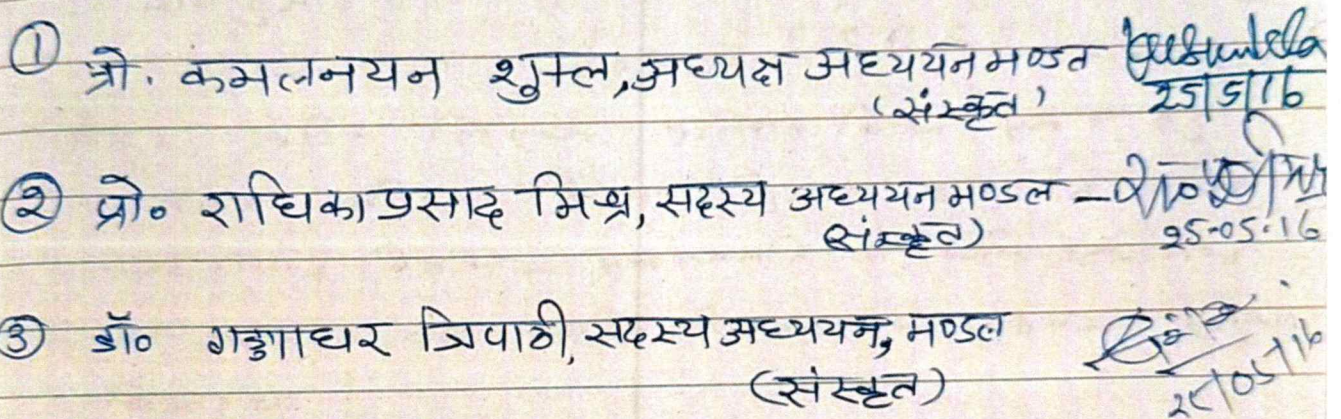 ① प्रो. कमलनयन शुक्ल, अध्यक्ष अध्ययन मण्डल
(संस्कृत) 25/5/16
② प्रो० राधिका प्रसाद मिश्र, सदस्य अध्ययन मण्डल –
(संस्कृत) 25-05-16
③ डॉ० गङ्गाधर त्रिपाठी, सदस्य अध्ययन, मण्डल
(संस्कृत) 25/05/16